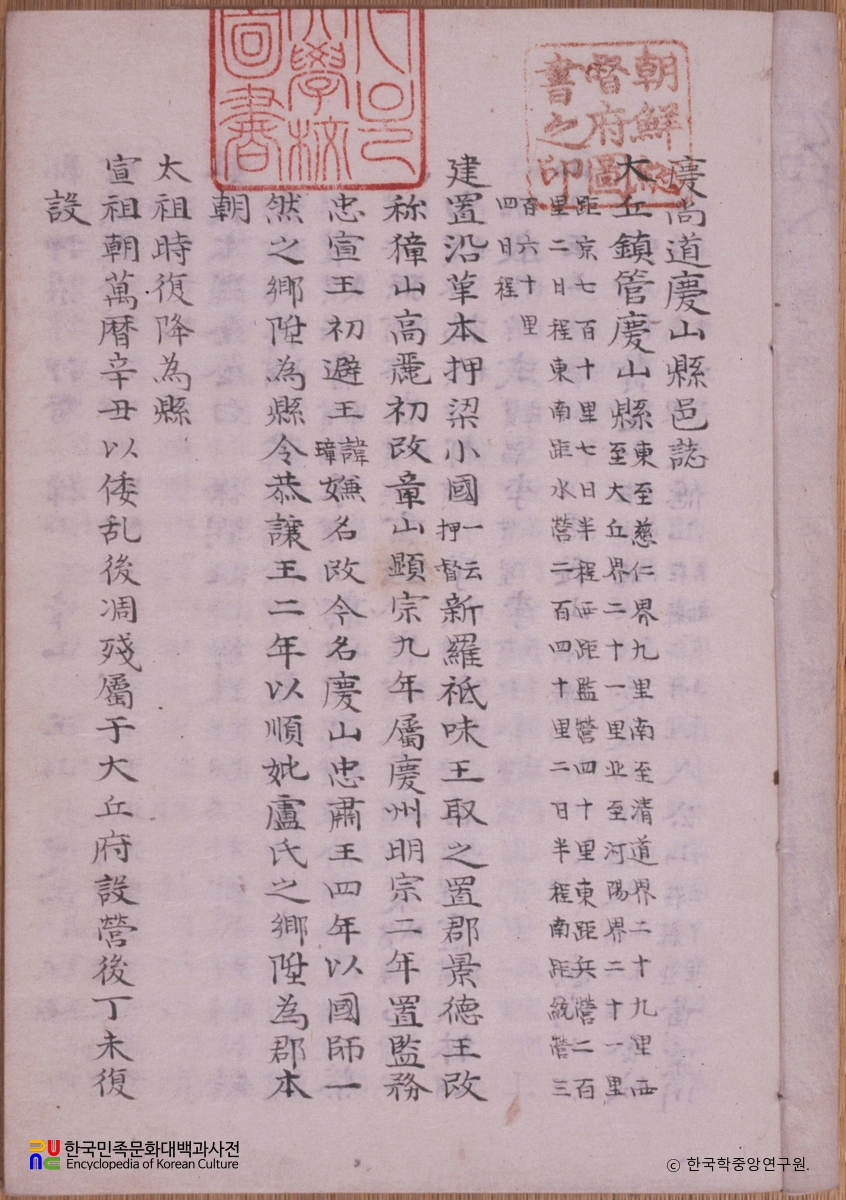 慶尚道慶山縣邑誌
大丘鎮管慶山縣東至慈仁界九里南至清道界二十九里西
至大丘界二十一里北至河陽界二十一里
距京七百十里七日半程西距監營四十里東距兵營二百
里二日程東南距水營二百四十里二日半程南距統營三
百六十里
四日程
建置沿革本押梁小國一云押督新羅祗味王取之置郡景德王改
称獐山高麗初改章山顯宗九年屬慶州明宗二年置監務
忠宣王初避王諱璋嫌名改今名慶山忠肅王四年以國師一
然之鄉陞為縣令恭讓王二年以順妣盧氏之鄉陞為郡本
朝
太祖時復降為縣
宣祖朝萬曆辛丑以倭乱後凋殘屬于大丘府設營後丁未復
設
朝鮮總
督府圖
書之印
大學校
圖書
한국민족문화대백과사전
Encyclopedia of Korean Culture
ⓒ 한국학중앙연구원.